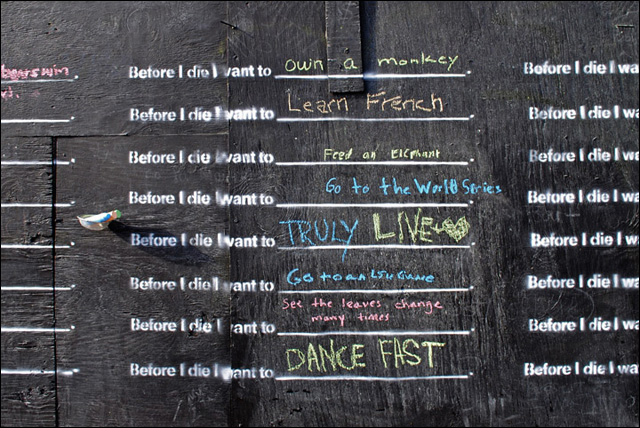 bears win Before I die I want to own a monkey. Before I die I wa
Before I die I want to Learn French. Before I die I wa
Before I die I want to Feed an Elephant. Before I die I wa
Before I die I want to Go to the World Series. Before I die I wa
Before I die I want to TRULY LIVE. Before I die I wa
Before I die I want to Go to an LSU Game. Before I die I wa
See the leaves change
Before I die I want to many times. Before I die I wa
Before I die I want to DANCE FAST. Before I die I wa